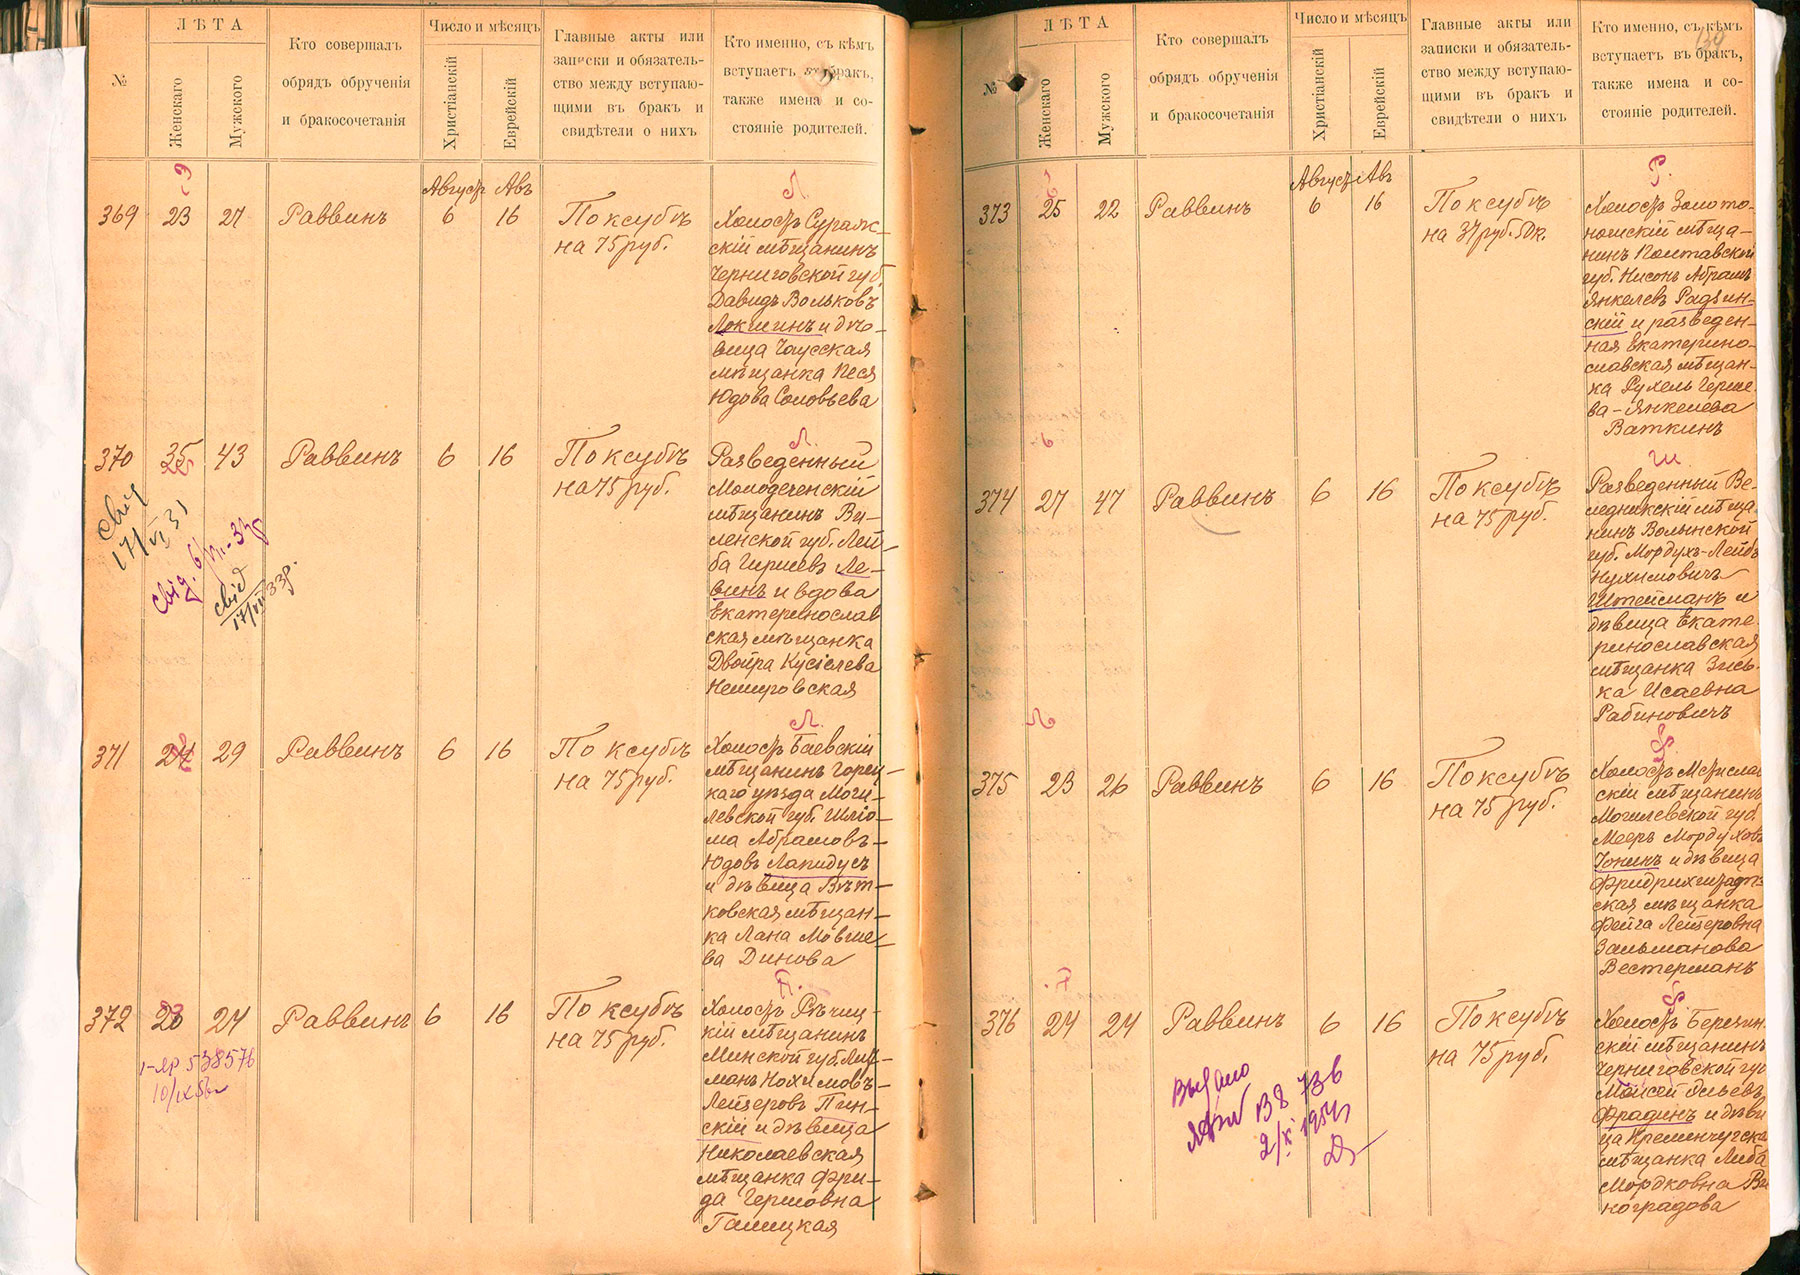 №
ЛѢТА
Женскаго
Мужского
Кто совершалъ
обрядъ обрученія
и бракосочетанія
Число и мѣсяцъ
Христіанскій
Еврейскій
Главные акты или
записки и обязатель-
ство между вступаю-
щими въ бракъ и
свидѣтели о нихъ
Кто именно, съ кѣмъ
вступаетъ въ бракъ,
также имена и со-
стояніе родителей.
Августъ Авъ
369 23 27 Раввинъ 6 16
По ксубѣ
на 75 руб.
Л.
Холостъ Сураж-
скій мѣщанинъ
Черниговской губ.
Давидъ Вольковъ
Локшинъ и дѣ-
вица Чаусская
мѣщанка Песя
Юдова Соловьева
370 35 43 Раввинъ 6 16
По ксубѣ
на 75 руб.
Л.
Разведенный
Молодеченскій
мѣщанинъ Ви-
ленской губ. Лей-
ба Гиршевъ Ле-
винъ и вдова
Екатеринослав
ская мѣщанка
Двойра Кусіелева
Немировская
свид
17/VI 31
свид. 6/
свид
17/VII 33г.
371 24 29 Раввинъ 6 16
По ксубѣ
на 75 руб.
Л.
Холостъ Баевскій
мѣщанинъ Горец-
каго уѣзда Моги-
левской губ. Шлiо-
ма Абрамовъ-
Юдовъ Лапидусъ
и дѣвица Вѣт-
ковская мѣщан-
ка Лана Мовше-
ва Динова
372 24 Раввинъ 6 16
По ксубѣ
на 75 руб.
П.
Холостъ Рѣчиц-
кій мѣщанинъ
Минской губ.
манъ Нохимовъ-
Лейзеровъ Пин-
скій и дѣвица
Николаевская
мѣщанка Фри-
да Гершовна
Галицкая
538576
№
ЛѢТА
Женскаго
Мужского
Кто совершалъ
обрядъ обрученія
и бракосочетанія
Число и мѣсяцъ
Христіанскій
Еврейскій
Главные акты или
записки и обязатель-
ство между вступаю-
щими въ бракъ и
свидѣтели о нихъ
Кто именно, съ кѣмъ
вступаетъ въ бракъ,
также имена и со-
стояніе родителей.
Августъ Авъ
373 25 22 Раввинъ 6 16
По ксубѣ
на 37 руб. 50к.
Р.
Холостъ Золото-
ношскій мѣща-
нинъ Полтавской
губ. Нисонъ Абрамъ
Янкелевъ Радзин-
скій и разведен-
ная Екатерино-
славская мѣщан-
ка Рухель Герше-
ва-Янкелева
Ваткинъ
374 27 47 Раввинъ 6 16
По ксубѣ
на 75 руб.
Ш
Разведенный Ве-
ледникскій мѣща
нинъ Волынской
губ. Мордухъ-Лейбъ
Нухимовичъ
Штейманъ и
дѣвица Екате-
ринославская
мѣщанка Зись-
ка Исаевна
Рабиновичъ
375 23 26 Раввинъ 6 16
По ксубѣ
на 75 руб.
Холостъ Мстислав
скій мѣщанинъ
Могилевской губ.
Мееръ Мордуховъ
Іонинъ и дѣвица
Фридрихштадт-
ская мѣщанка
Фейга Лейзеровна
Зальманова
Вестерманъ
376 24 24 Раввинъ 6 16
По ксубѣ
на 75 руб.
Ф
Холостъ Березин
скій мѣщанинъ
Черниговской губ
Мойсей Эльевъ
Фрадинъ и дѣви
ца Кременчугска
мѣщанка Либа
Мордковна Ви
ноградова
Выдано